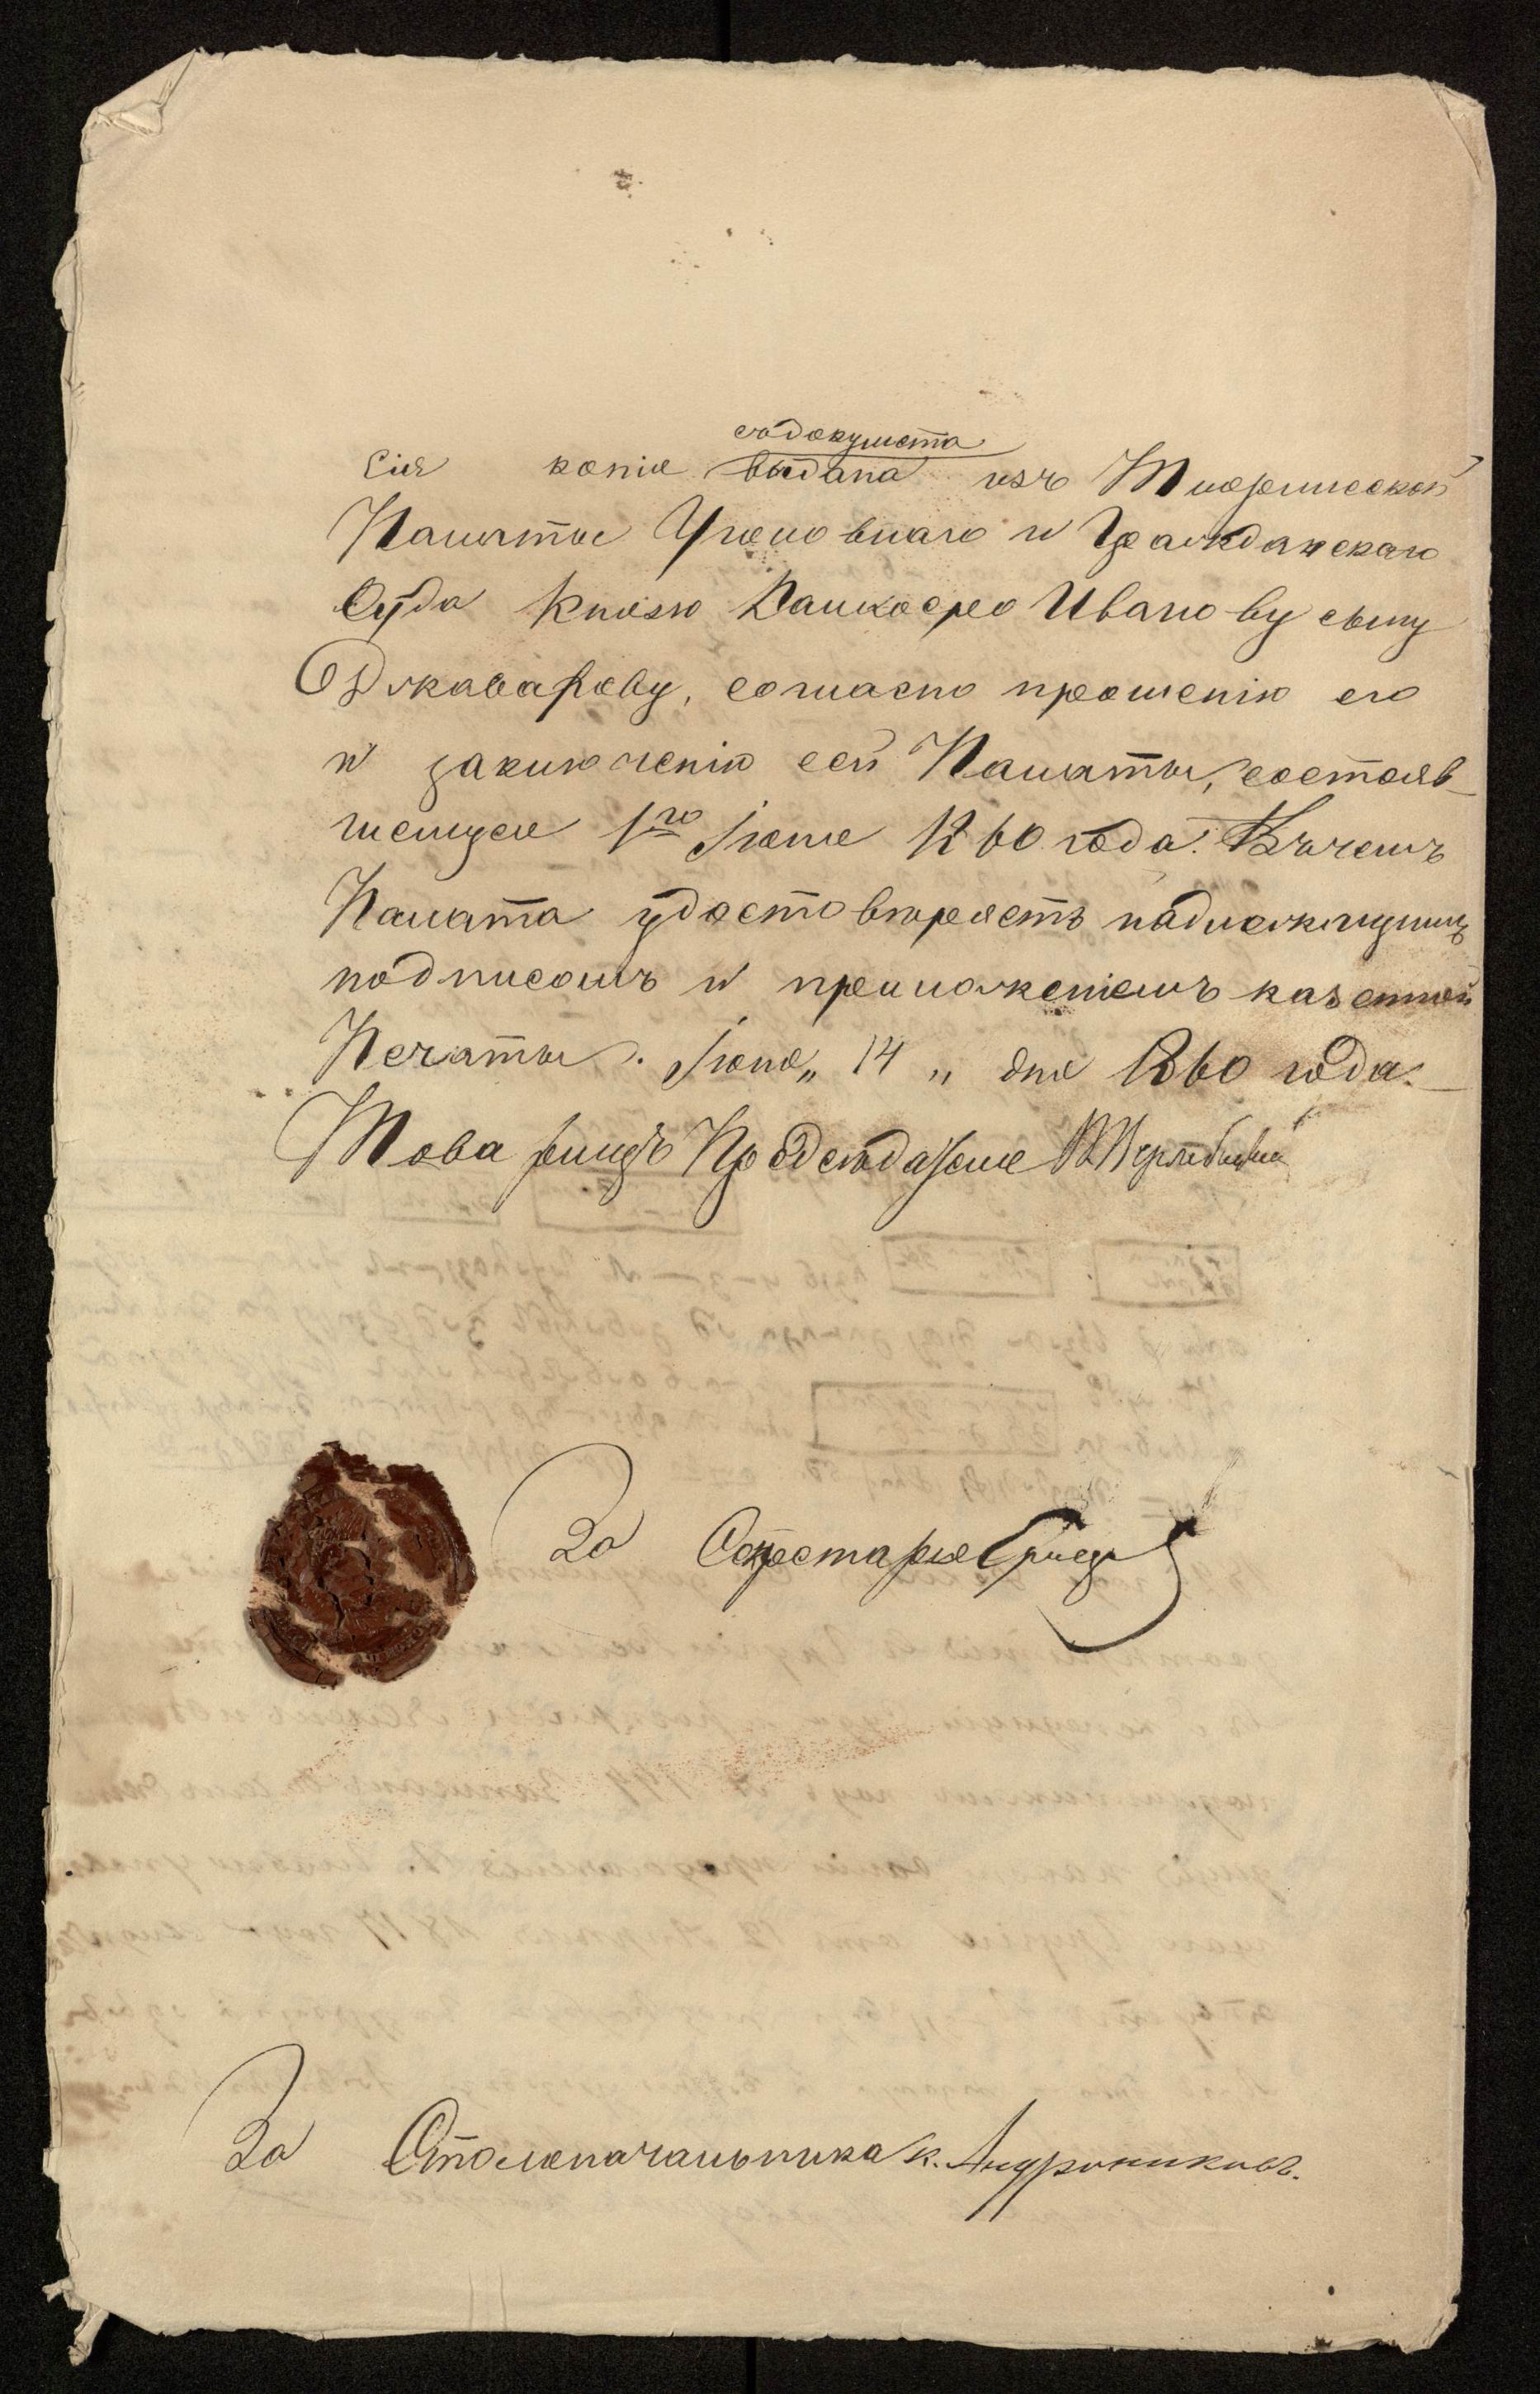 съдокумента
Сія копія выдана изъ Тифлисской
Палаты Уголовнаго и Гражданскаго
Суда Князю Каихосро Иванову сыну
Джавахову, согласно прошенію его
и заключенію сей Палаты, состояв-
шемуся 1го Іюня 1860 года. Въ чемъ
Палата удостовѣряетъ надлежащимъ
подписомъ и приложеніемъ казенной
Печати. Іюня „ 14 „ дня 1860 года.
Товарищъ Предсѣдателя
За Секретаря
За Столоначальника к. Андрониковъ.